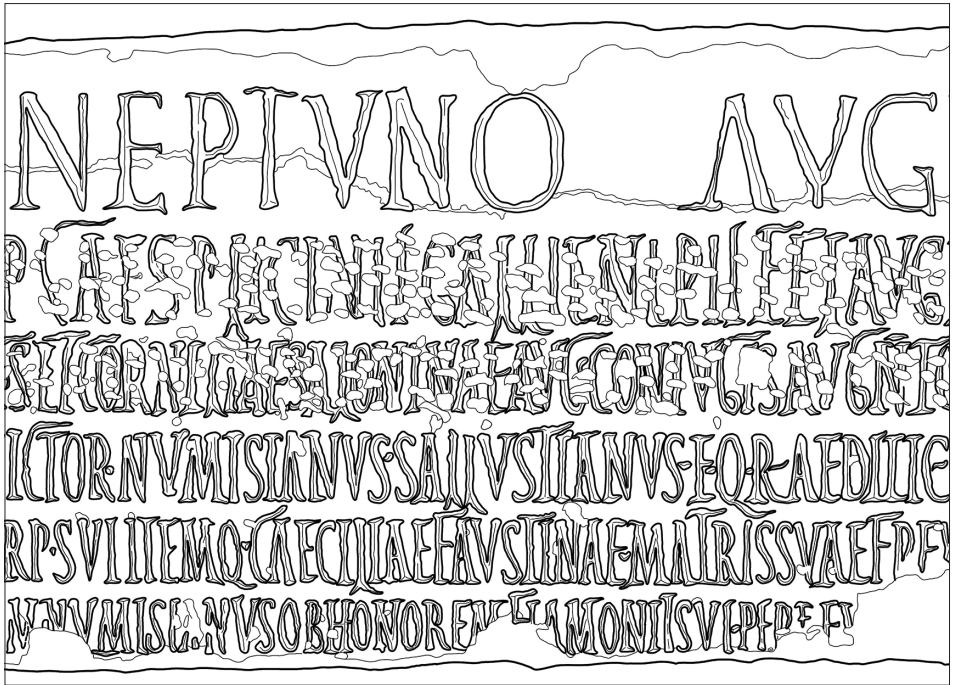 NEPTVNO AVG
P CAES P LICINI GALLIENI PII FEL AVG
S ET CORNELIAE SALONINAE AVG CONIVGIS AVG N ET
ICTOR·NVMISIANVS·SALLVSTIANVS·EQ·R·AEDILIC
RP·SVI ITEMQ CAECILIAE FAVSTINAE MATRIS SVAE
NVMISIANVS OB HONOREM FLAMONII SVI